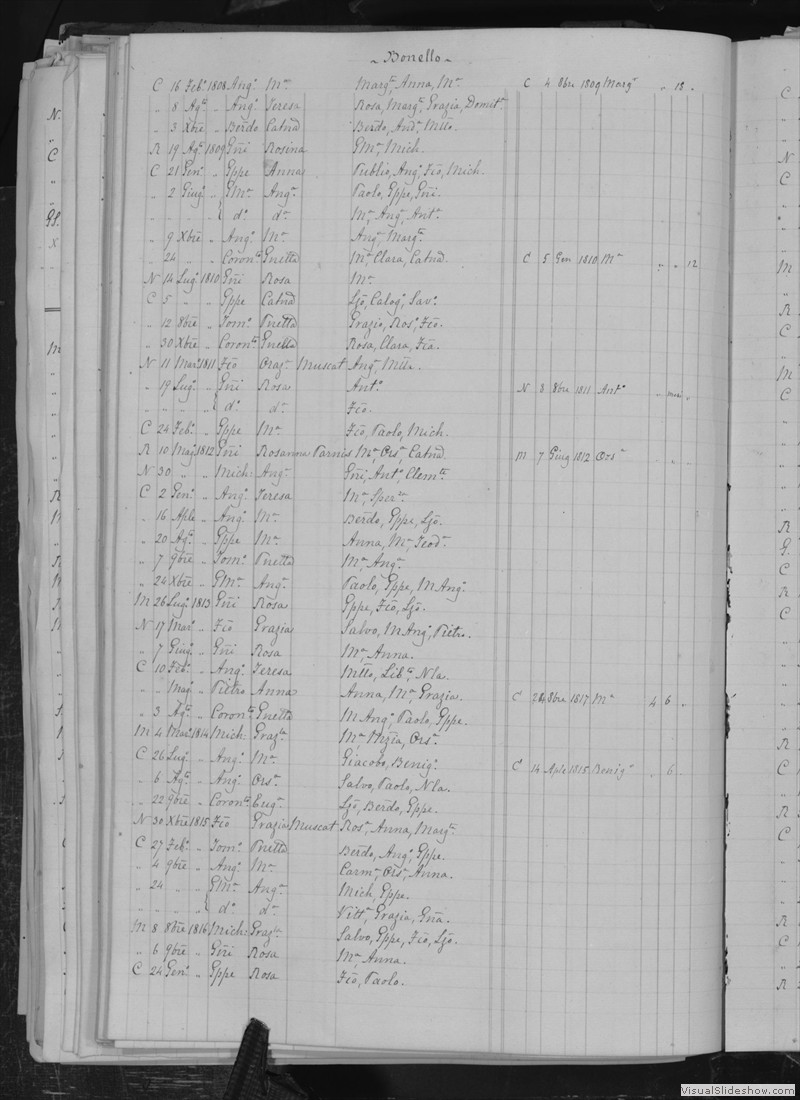 ~ Bonello ~
C 16 Feb.º 1808 Ang.º M.ª Marg.ta, Anna, M.ª C 4 8bre 1809 Marg.ta " 18 "
" 8 Ag.to " Ang.º Teresa Rosa, Marg.ta, Grazia, Domit.ª
" 3 Xbre " Berdo Catnd Berdo, And.ª, Mtto.
R 19 Ag.to 1809 Gñi Rosina GM.ª, Mich.
C 21 Gen.º " Gppe Anna Publio, Ang.º, Fco, Mich.
" 2 Giug.º " GM.ª Ang.ª Paolo, Gppe, Gñi.
" " " " d.º d.ª M.ª, Ang.ª, Ant.ª
" 9 Xbre " Ang.º M.ª Ang.ª, Marg.ta
" 24 " " Coron.to Gnetta M.ª, Clara, Catnd. C 5 Gen 1810 M.ª " " 12
N 14 Lug.º 1810 Gñi Rosa M.ª
C 5 " " Gppe Catnd Ljo, Calog.º, Sav.ª
" 12 8bre " Tom.º Pnetta Grazio, Ros.ª, Fco.
" 30 Xbre " Coron.to Gnetta Rosa, Clara, Fca.
N 11 Mar.º 1811 Fco Oraz.ª Muscat Ang.ª, Mtta.
" 19 Lug.º " Gñi Rosa Ant.º N 3 8bre 1811 Ant.º
" " " " d.º d.ª Fco.
C 24 Feb.º " Gppe M.ª Fco, Paolo, Mich.
R 10 Mag.º 1812 Gñi Rosa Parnis M.ª, Ors.ª, Catnd. M 7 Giug 1812 Ors.ª " " "
N 30 " " Mich: Ang.ª Gñi, Ant.º, Clem.te
C 2 Gen.º " Ang.º Teresa M.ª, Sper.za
" 16 Aple " Ang.º M.ª Berdo, Gppe, Ljo.
" 20 Ag.to " Gppe M.ª Anna, M.ª, Teod.ª
" 7 9bre " Tom.º Pnetta M.ª, Ang.ª
" 24 Xbre " GM.ª Ang.ª Paolo, Gppe, M Ang.º
M 26 Lug.º 1813 Gñi Rosa Gppe, Fco, Ljo.
N 17 Mar.º " Fco Grazia Salvo, M Ang.º, Pietro.
" 7 Giug.º " Gñi Rosa M.ª, Anna.
C 10 Feb.º " Ang.º Teresa Mtto, Lib.ª, Nla.
" " Mag.º " Pietro Anna Anna, M.ª, Grazia. C 24 8bre 1817 M.ª 4 6 "
" 3 Ag.to " Coron.to Gnetta M Ang.º, Paolo, Gppe.
M 4 Mar.º 1814 Mich: Graz.ª M.ª, Vnzia, Ors.ª
C 26 Lug.º " Ang.º M.ª Giacobo, Benig.º C 14 Aple 1815 Benig.º " 6 "
" 6 Ag.to " Ang.º Ors.ª Salvo, Paolo, Nla.
" 22 9bre " Coron.to Eug.ª Ljo, Berdo, Gppe.
N 30 Xbre 1815 Fco Grazia Muscat Ros.ª, Anna, Marg.ta
C 27 Feb.º " Tom.º Pnetta Berdo, Ang.º, Gppe.
" 4 9bre " Ang.º M.ª Carm.ª, Ors.ª, Anna.
" 24 " " GM.ª Ang.ª Mich, Gppe.
" " " " d.º d.ª Vitt.ª, Grazia, Gña.
M 8 8bre 1816 Mich: Graz.ª Salvo, Gppe, Fco, Ljo.
" 6 9bre " Gñi Rosa M.ª, Anna.
C 24 Gen.º " Gppe Rosa Fco, Paolo.
VisualSlideshow.com